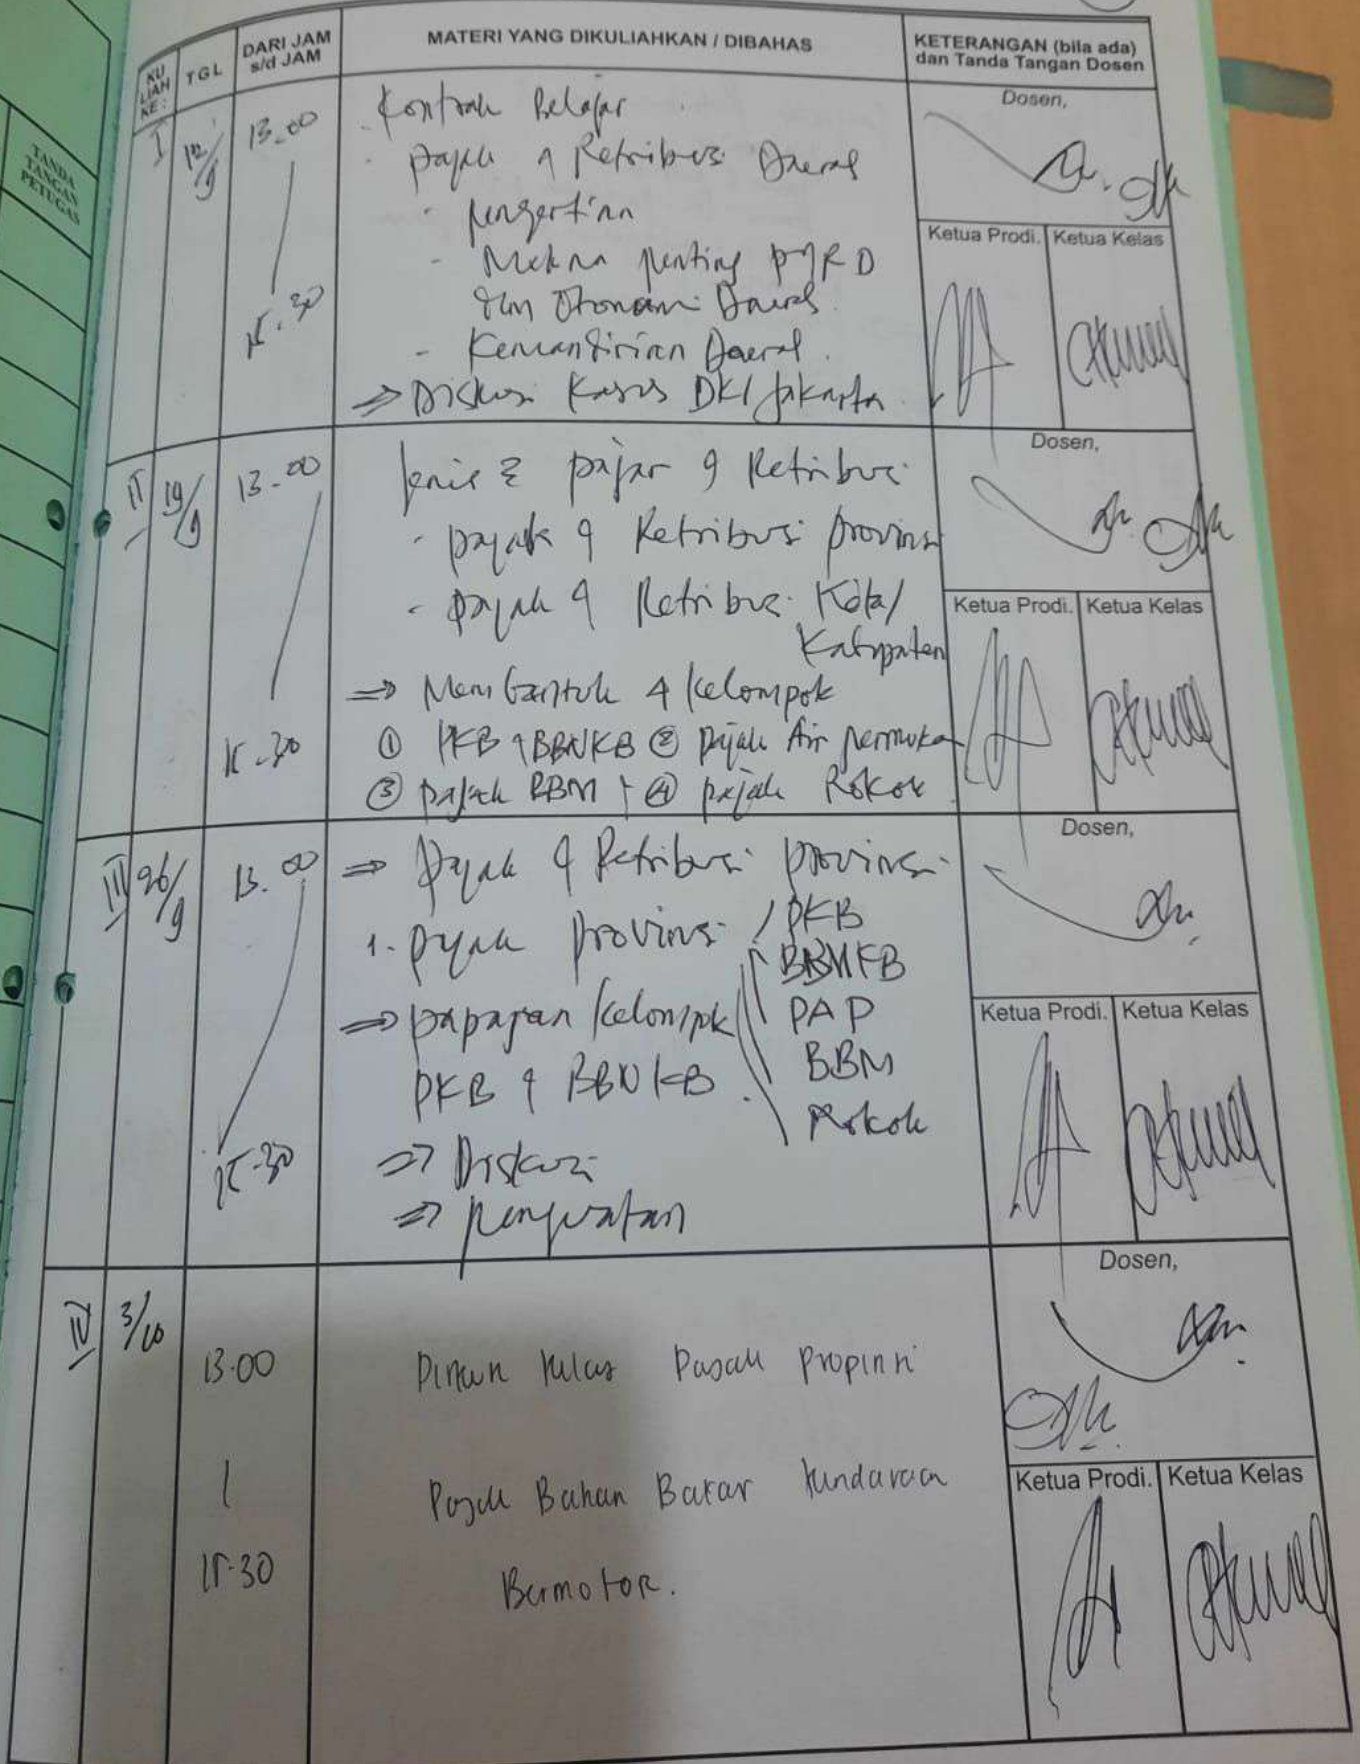 KU LIAH KE :
TGL
DARI JAM s/d JAM
MATERI YANG DIKULIAHKAN / DIBAHAS
KETERANGAN (bila ada) dan Tanda Tangan Dosen
TANDA TANGAN PETUGAS
I
12/9
13.00
15.30
Kontrak Belajar
- pajak & Retribusi Daerah
- pengertian
- Makna penting PDRD
dlm Otonomi Daerah
- Kemandirian Daerah.
=> Diskusi Kasus DKI Jakarta
Dosen,
Ketua Prodi.
Ketua Kelas
II
19/9
13.00
15.30
Jenis2 pajak & Retribusi
- pajak & Retribusi provinsi
- pajak & Retribusi Kota/
Kabupaten
=> Membentuk 4 kelompok
① PKB & BBNKB ② pajak Air permukaan
③ pajak BBM + ④ pajak Rokok
Dosen,
Ketua Prodi.
Ketua Kelas
III
26/9
13.00
15.30
=> pajak & Retribusi provinsi
1. pajak provinsi
PKB
BBNKB
PAP
BBM
Rokok
=> paparan kelompok
PKB & BBNKB.
=> Diskusi
=> penguatan
Dosen,
Ketua Prodi.
Ketua Kelas
IV
3/10
13.00
|
15.30
Kelas Pajak Propinsi
Pajak Bahan Bakar kendaraan
Bermotor.
Dosen,
Ketua Prodi.
Ketua Kelas